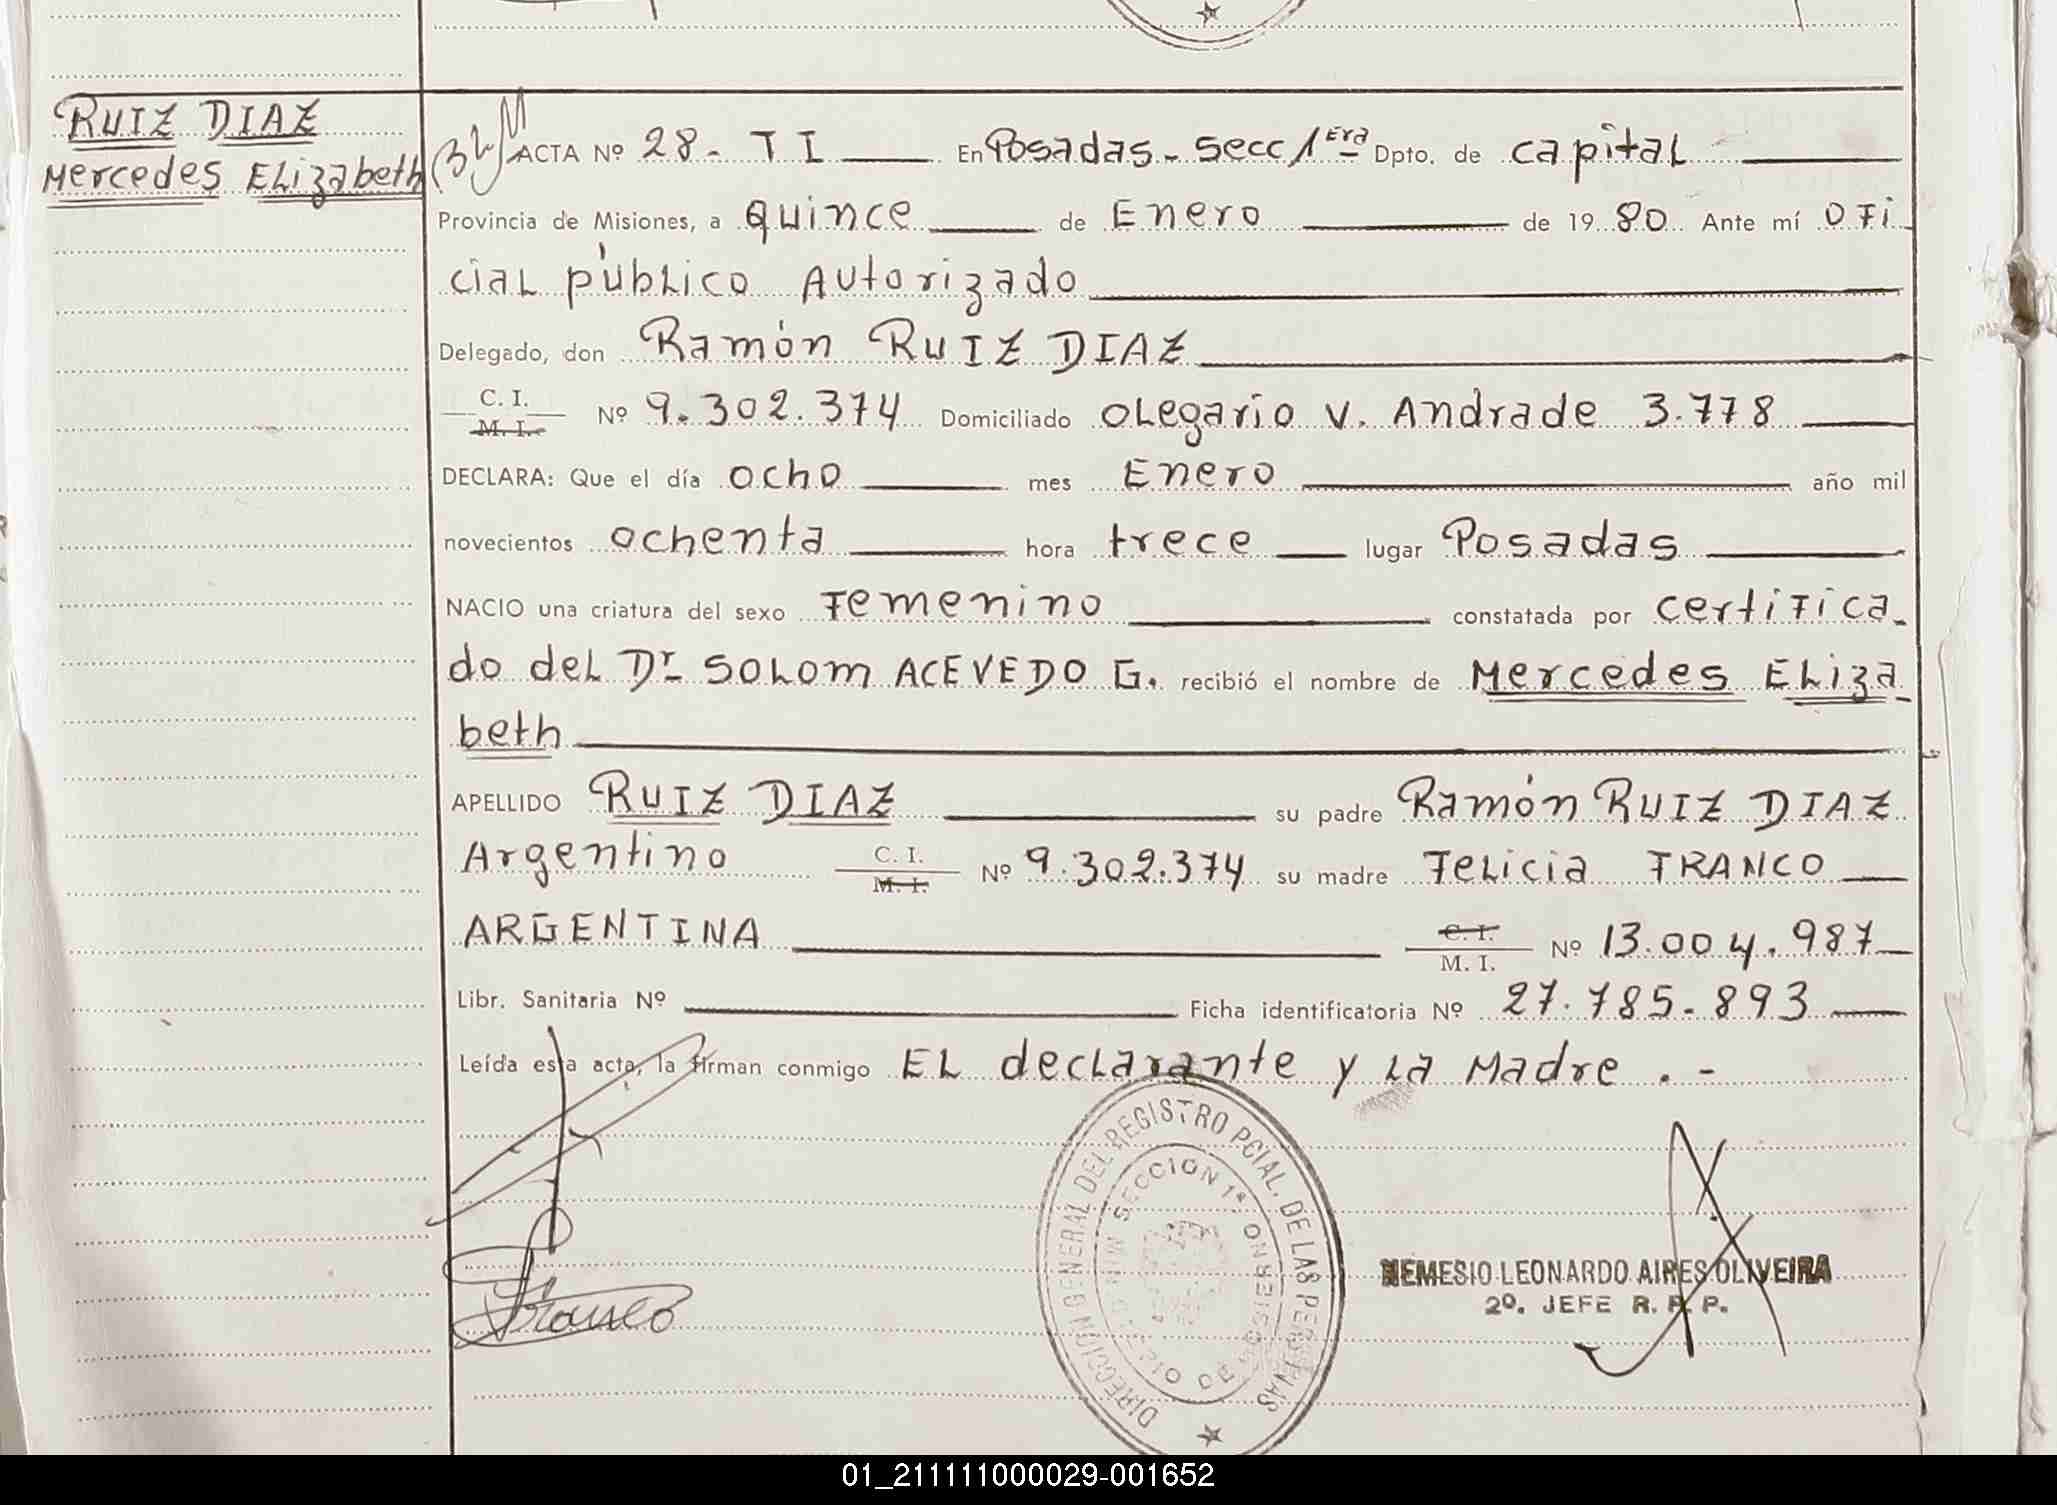 RUIZ DIAZ
Mercedes Elizabeth
ACTA Nº 28 - T I En Posadas - secc 1era Dpto. de capital
Provincia de Misiones, a quince de Enero de 1980 Ante mí ofi
cial público Autorizado
Delegado, don Ramón RUIZ DIAZ
C. I.
M. I. Nº 9.302.374 Domiciliado Olegario V. Andrade 3.778
DECLARA: Que el día ocho mes Enero año mil
novecientos ochenta hora trece lugar Posadas
NACIO una criatura del sexo Femenino constatada por certifica-
do del Dr SOLOM ACEVEDO G. recibió el nombre de Mercedes Eliza
beth
APELLIDO RUIZ DIAZ su padre Ramón RUIZ DIAZ
Argentino C. I.
M. I. Nº 9.302.374 su madre Felicia FRANCO
ARGENTINA C. I.
M. I. Nº 13.004.987
Libr. Sanitaria Nº Ficha identificatoria Nº 27.785.893
Leída esta acta, la firman conmigo El declarante y la Madre . -
DIRECCION GENERAL DEL REGISTRO PCIAL. DE LAS PERSONAS
SECCION 1ª
Franco
NEMESIO LEONARDO AIRES OLIVEIRA
2º. JEFE R. P. P.
01_211111000029-001652